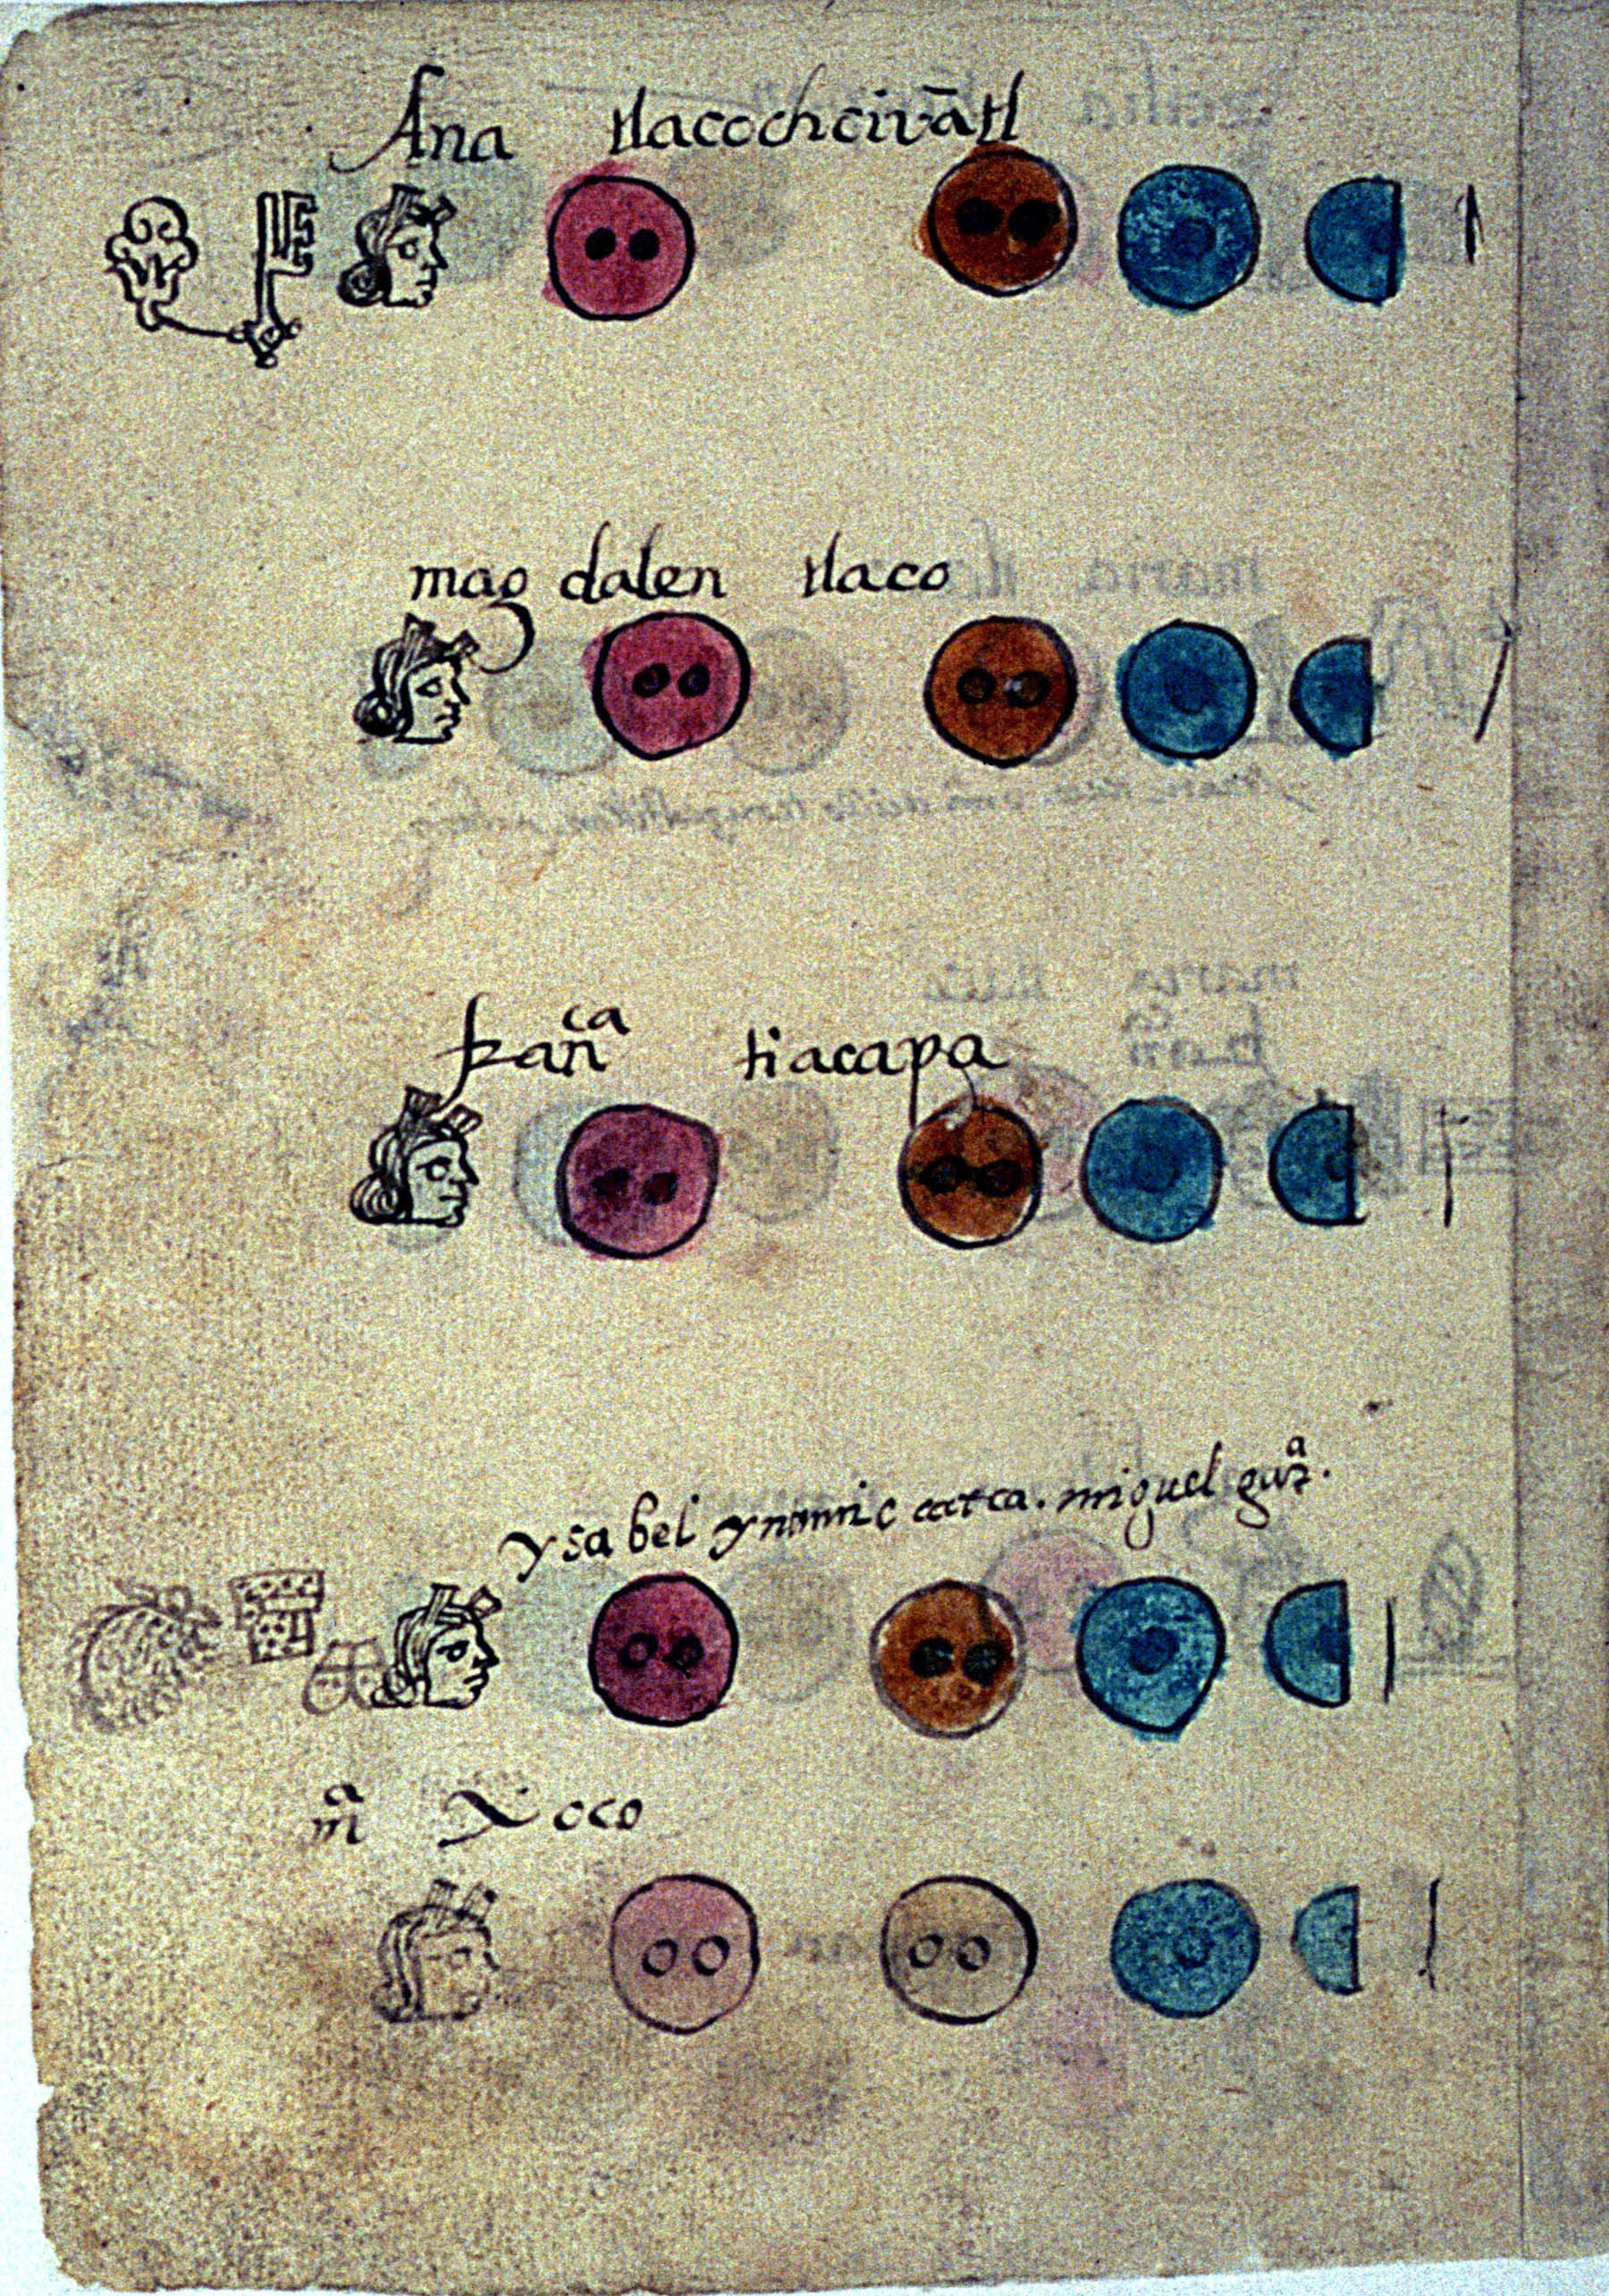 Ana tlacochcivātl
mag dalen tlaco
franca tiacapa
ysabel ynamic catca. miguel gura.
ma Xoco